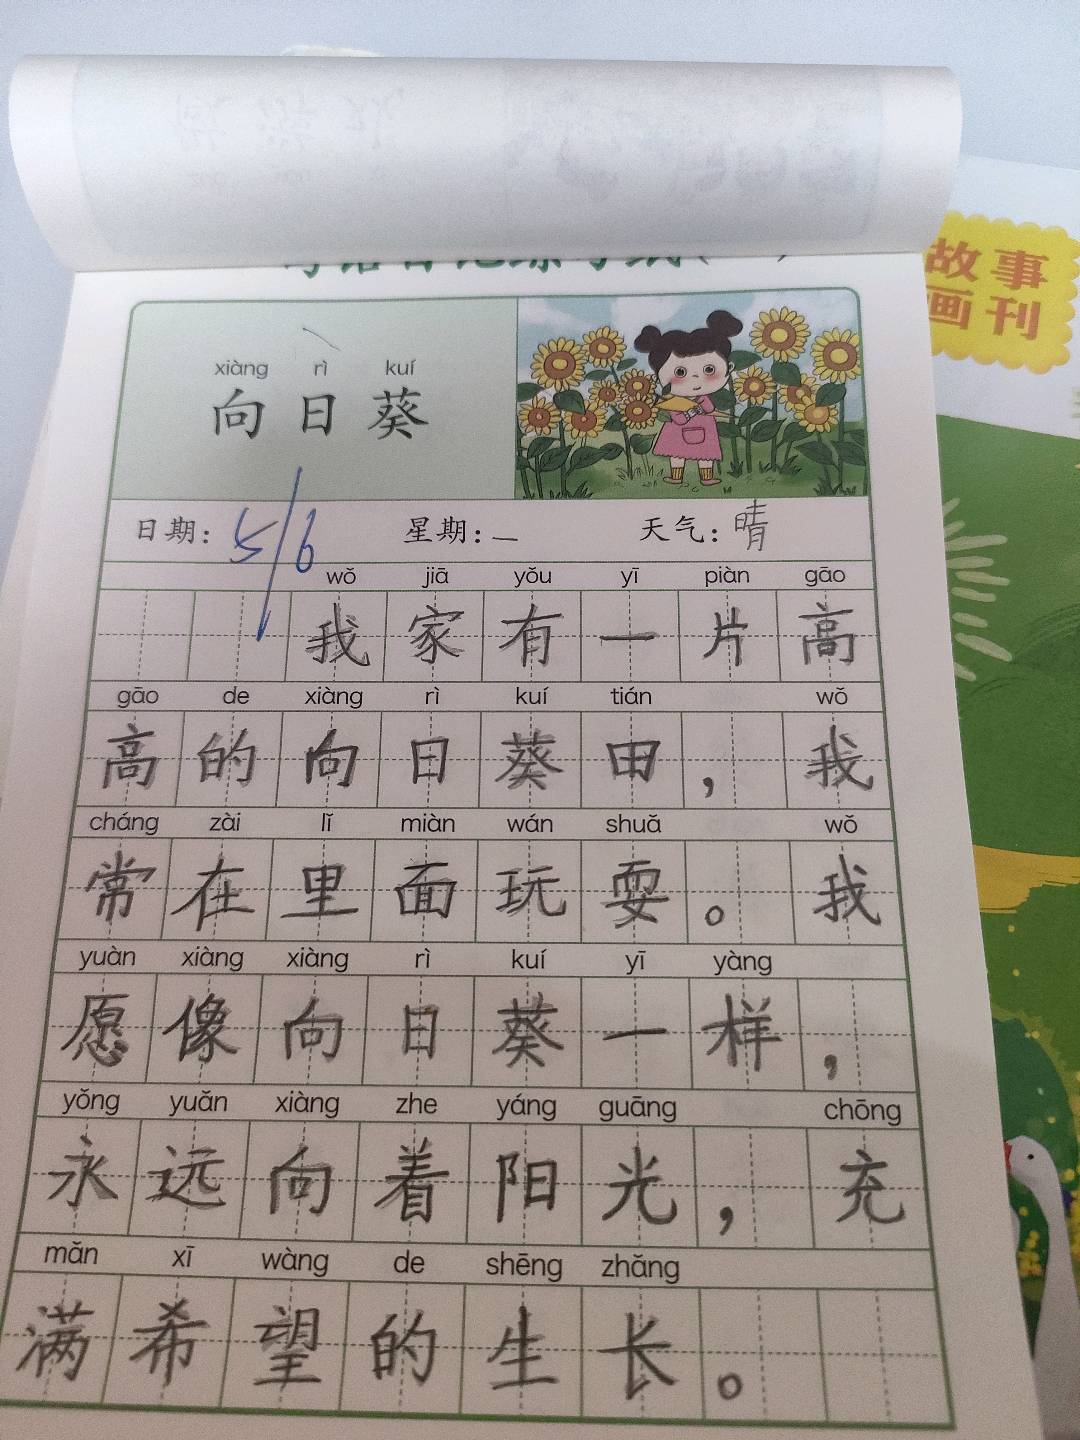 故事
画刊
xiàng rì kuí
向日葵
日期：5/6 星期：一 天气：晴
wǒ jiā yǒu yī piàn gāo
我家有一片高
gāo de xiàng rì kuí tián wǒ
高的向日葵田，我
cháng zài lǐ miàn wán shuǎ wǒ
常在里面玩耍。我
yuàn xiàng xiàng rì kuí yī yàng
愿像向日葵一样，
yǒng yuǎn xiàng zhe yáng guāng chōng
永远向着阳光，充
mǎn xī wàng de shēng zhǎng
满希望的生长。